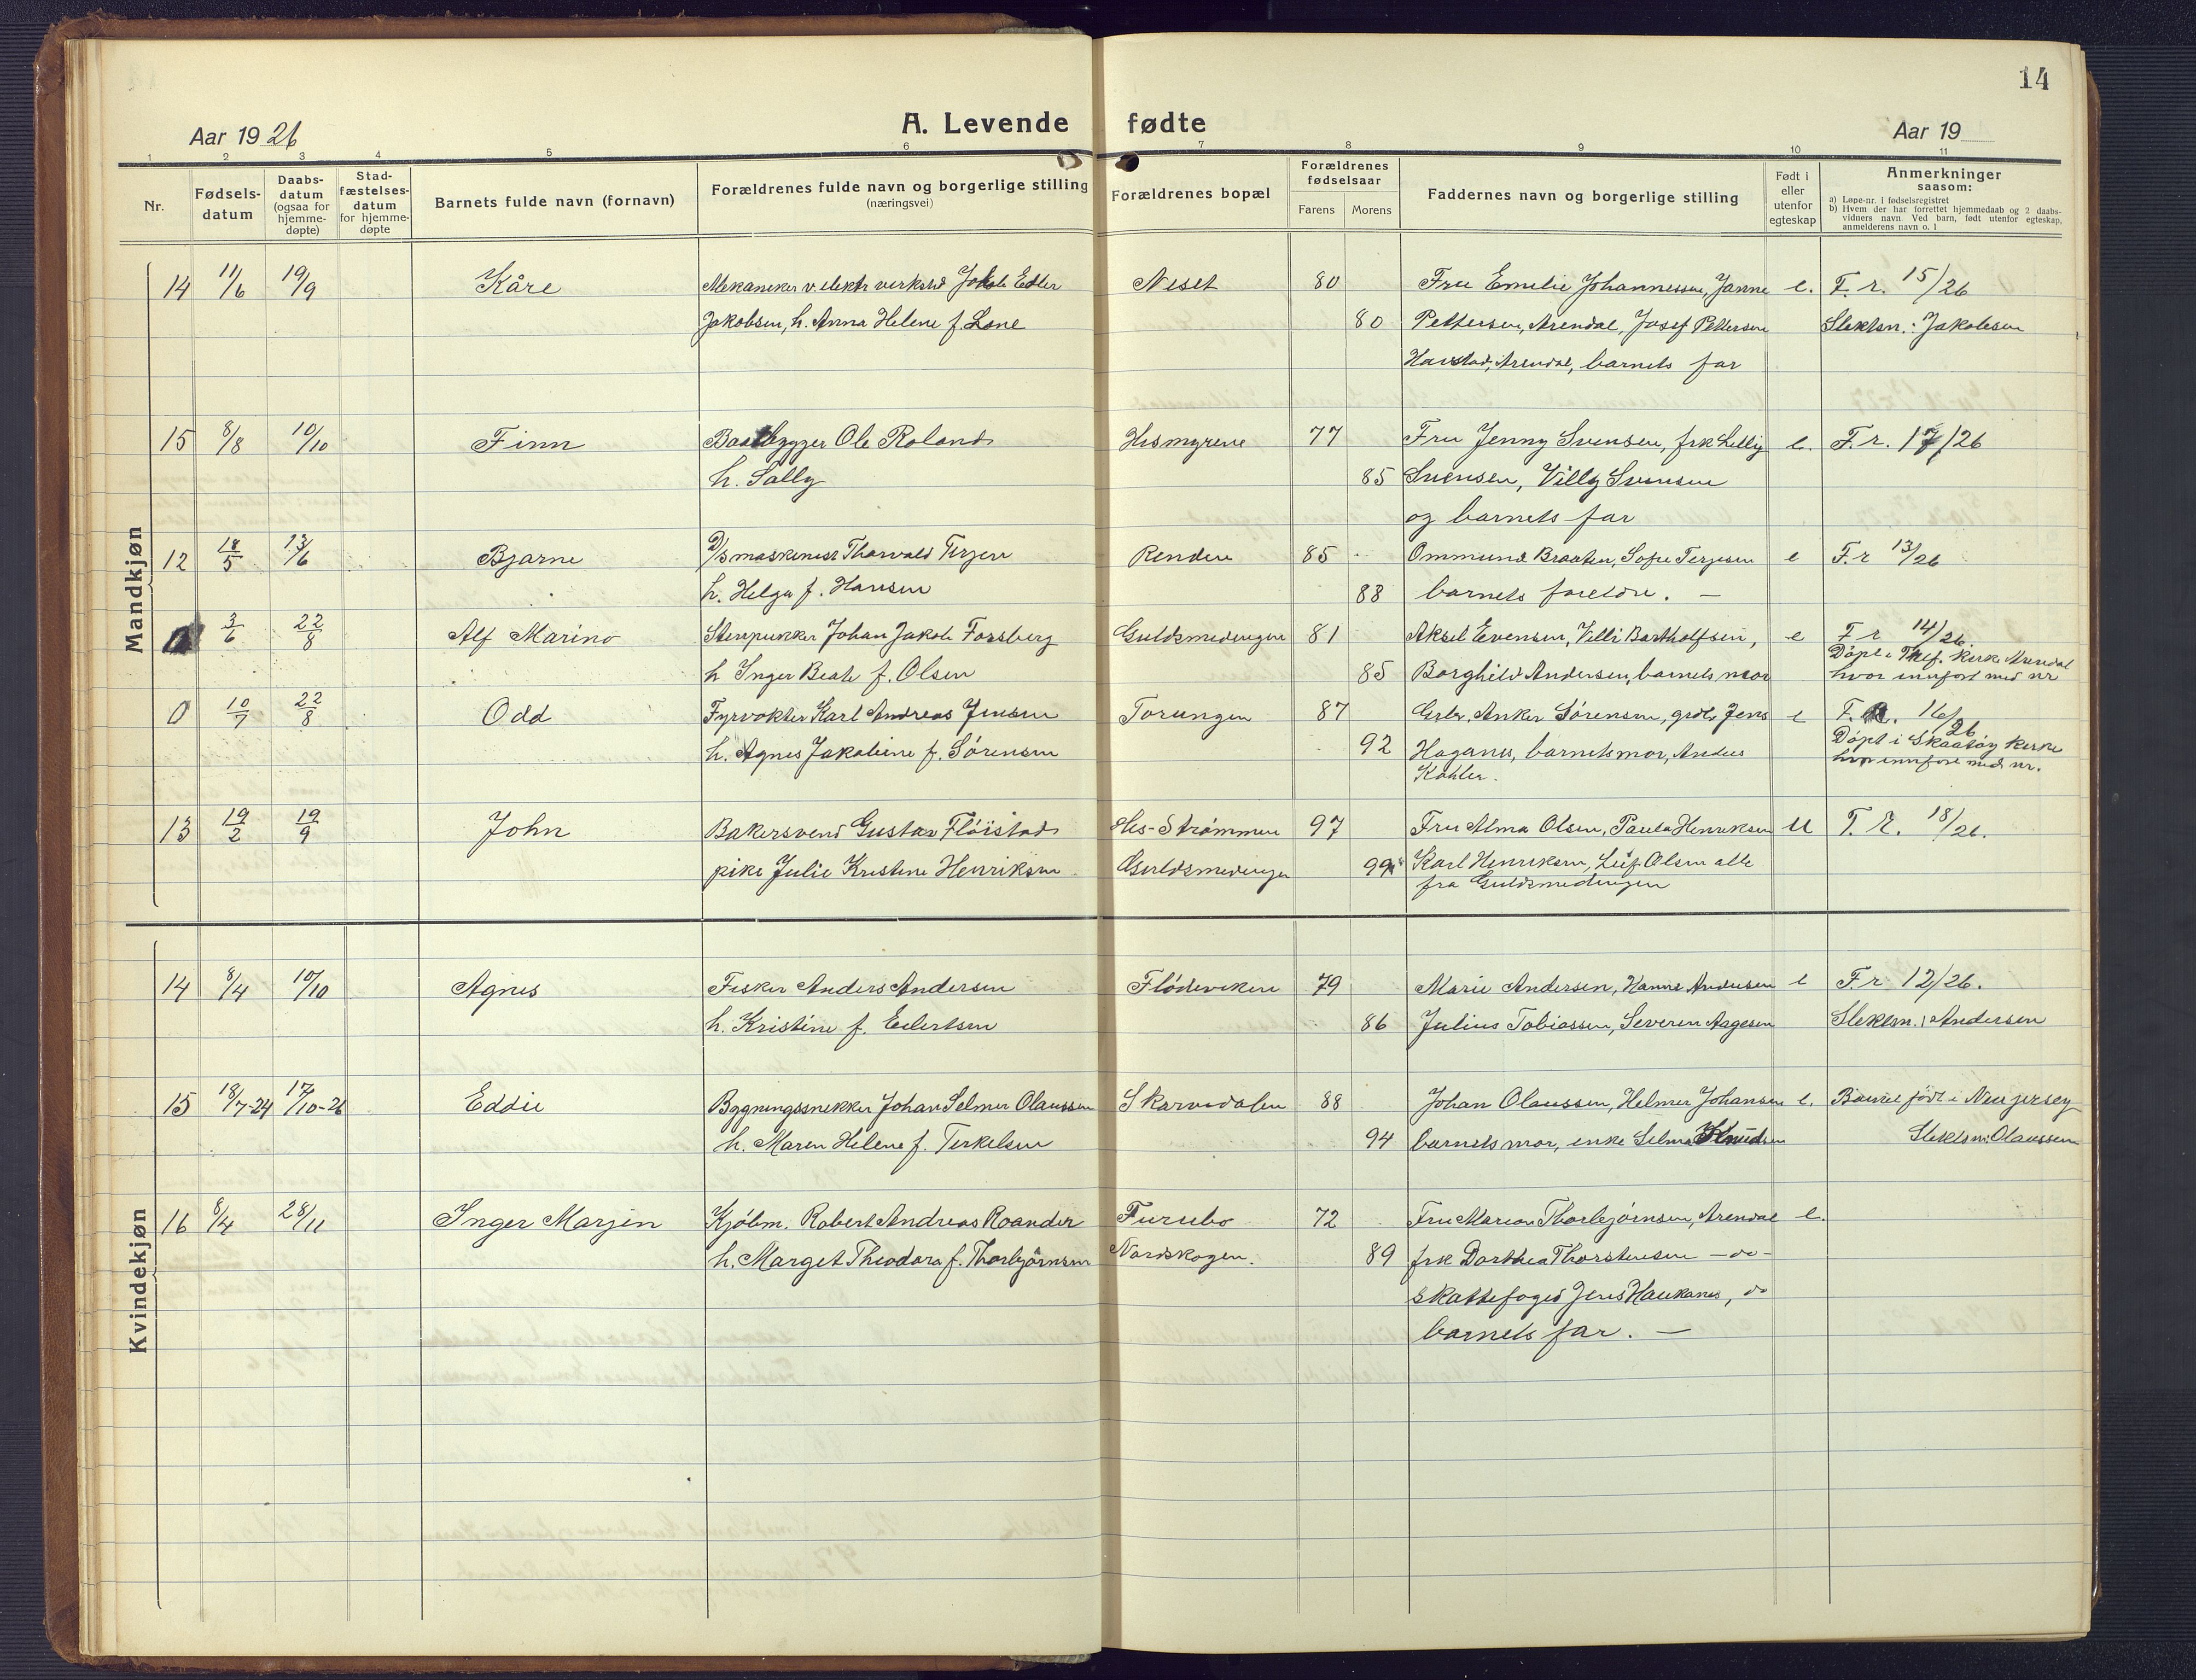 14
A. Levende fødte
Aar 1926
Aar 19
1 2 3 4 5 6 7 8 9 10 11
Nr.
Fødsels-
datum
Daabs-
datum
(ogsaa for
hjemme-
døpte)
Stad-
fæstelses-
datum
for hjemme-
døpte
Barnets fulde navn (fornavn)
Forældrenes fulde navn og borgerlige stilling
(næringsvei)
Forældrenes bopæl
Forældrenes
fødselsaar
Farens Morens
Faddernes navn og borgerlige stilling
Født i
eller
utenfor
egteskap
Anmerkninger
saasom:
a) Løpe-nr. i fødselsregistret
b) Hvem der har forrettet hjemmedaab og 2 daabs-
vidners navn Ved barn, født utenfor egteskap,
anmelderens navn o. l
Mandkjøn
14 11/6 19/9 Kåre Mekaneker v. elektr verksted Jakob Edler Neset 80 Fru Emelie Johannessen, Janne e. F. r. 15/26
Jakobsen, h. Anna Helene f. Lone 80 Pettersen, Arendal, Josef Pettersen Slektsn.: Jakobsen
Harstad, Arendal, barnets far
15 8/8 10/10 Finn Baatbygger Ole Roland Hismyrene 77 Fru Jenny Svensen, frk Lilly e. F. r. 17/26
h. Sally 85 Svensen, Villy Svensen
og barnets far
12 18/5 13/6 Bjarne D/s maskinist Thorvald Terjesen Renden 85 Ommund Braaten, Sofie Terjesen e F. r 13/26
h. Helga f. Hansen 88 barnets foreldre. —
3/6 22/8 Alf Marino Stenpukker Johan Jakob Forsberg Guldsmedengen 81 Aksel Evensen, Villi Bartholfsen, e F r 14/26
h Inger Beate f. Olsen 85 Borghild Andersen, barnets mor Döpt i Tref. kirke Arendal
hvor innfört med nr
0 10/7 22/8 Odd Fyrvokter Karl Andreas Jensen Torungen 87 Anker Sørensen, Jens e F. R. 16/26
h. Agnes Jakobine f. Sørensen 92 Haganes, barnets mor, Anders Döpt i Skaatöy kirke
Köhler. hvor innfört med nr.
13 19/2 19/9 John Bakersvend Gustav Flöistad His-Strømmen 97 Fru Alma Olsen, Paula Henriksen U F. R. 18/26.
pike Julie Kristine Henriksen Guldsmedengen 99 Karl Henriksen, Leif Olsen alle
fra Guldsmedengen
Kvindekjøn
14 8/4 10/10 Agnes Fisker Anders Andersen Flödeviken 79 Marie Andersen, Hanna Andersen e F r 12/26.
h. Kristine f. Eilertsen 86 Julius Tobiassen, Severin Aagesen Slektsn.: Andersen
15 18/7-24 17/10-26 Eddie Bygningssnekker Johan Selmer Olaussen Skarvedalen 88 Johan Olaussen, Helmer Johansen e. Barnet födt i New jersey
h. Maren Helene f. Terkelsen 94 barnets mor, enke Selma Knudsen Slektsn: Olaussen
16 8/4 28/11 Inger Marjen Kjöbm. Robert Andreas Roander Furubo 72 Fru Maren Thorbjørnsen, Arendal e.
h. Marget Theodora f. Thorbjörnsen Nordskogen. 89 frk Dorthea Thorstensen —do—
skattefoged Jens Haukanes, do
barnets far. —